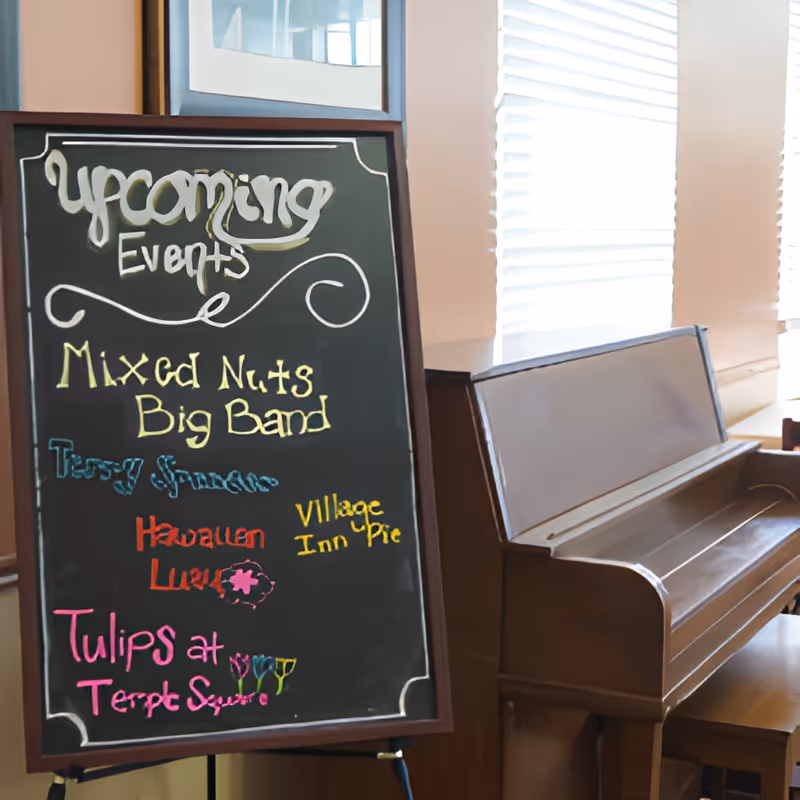 Upcoming
Events
Mixed Nuts
Big Band
Terry
Hawaiian
Village
Inn Pie
Luau
Tulips at
Temple Square